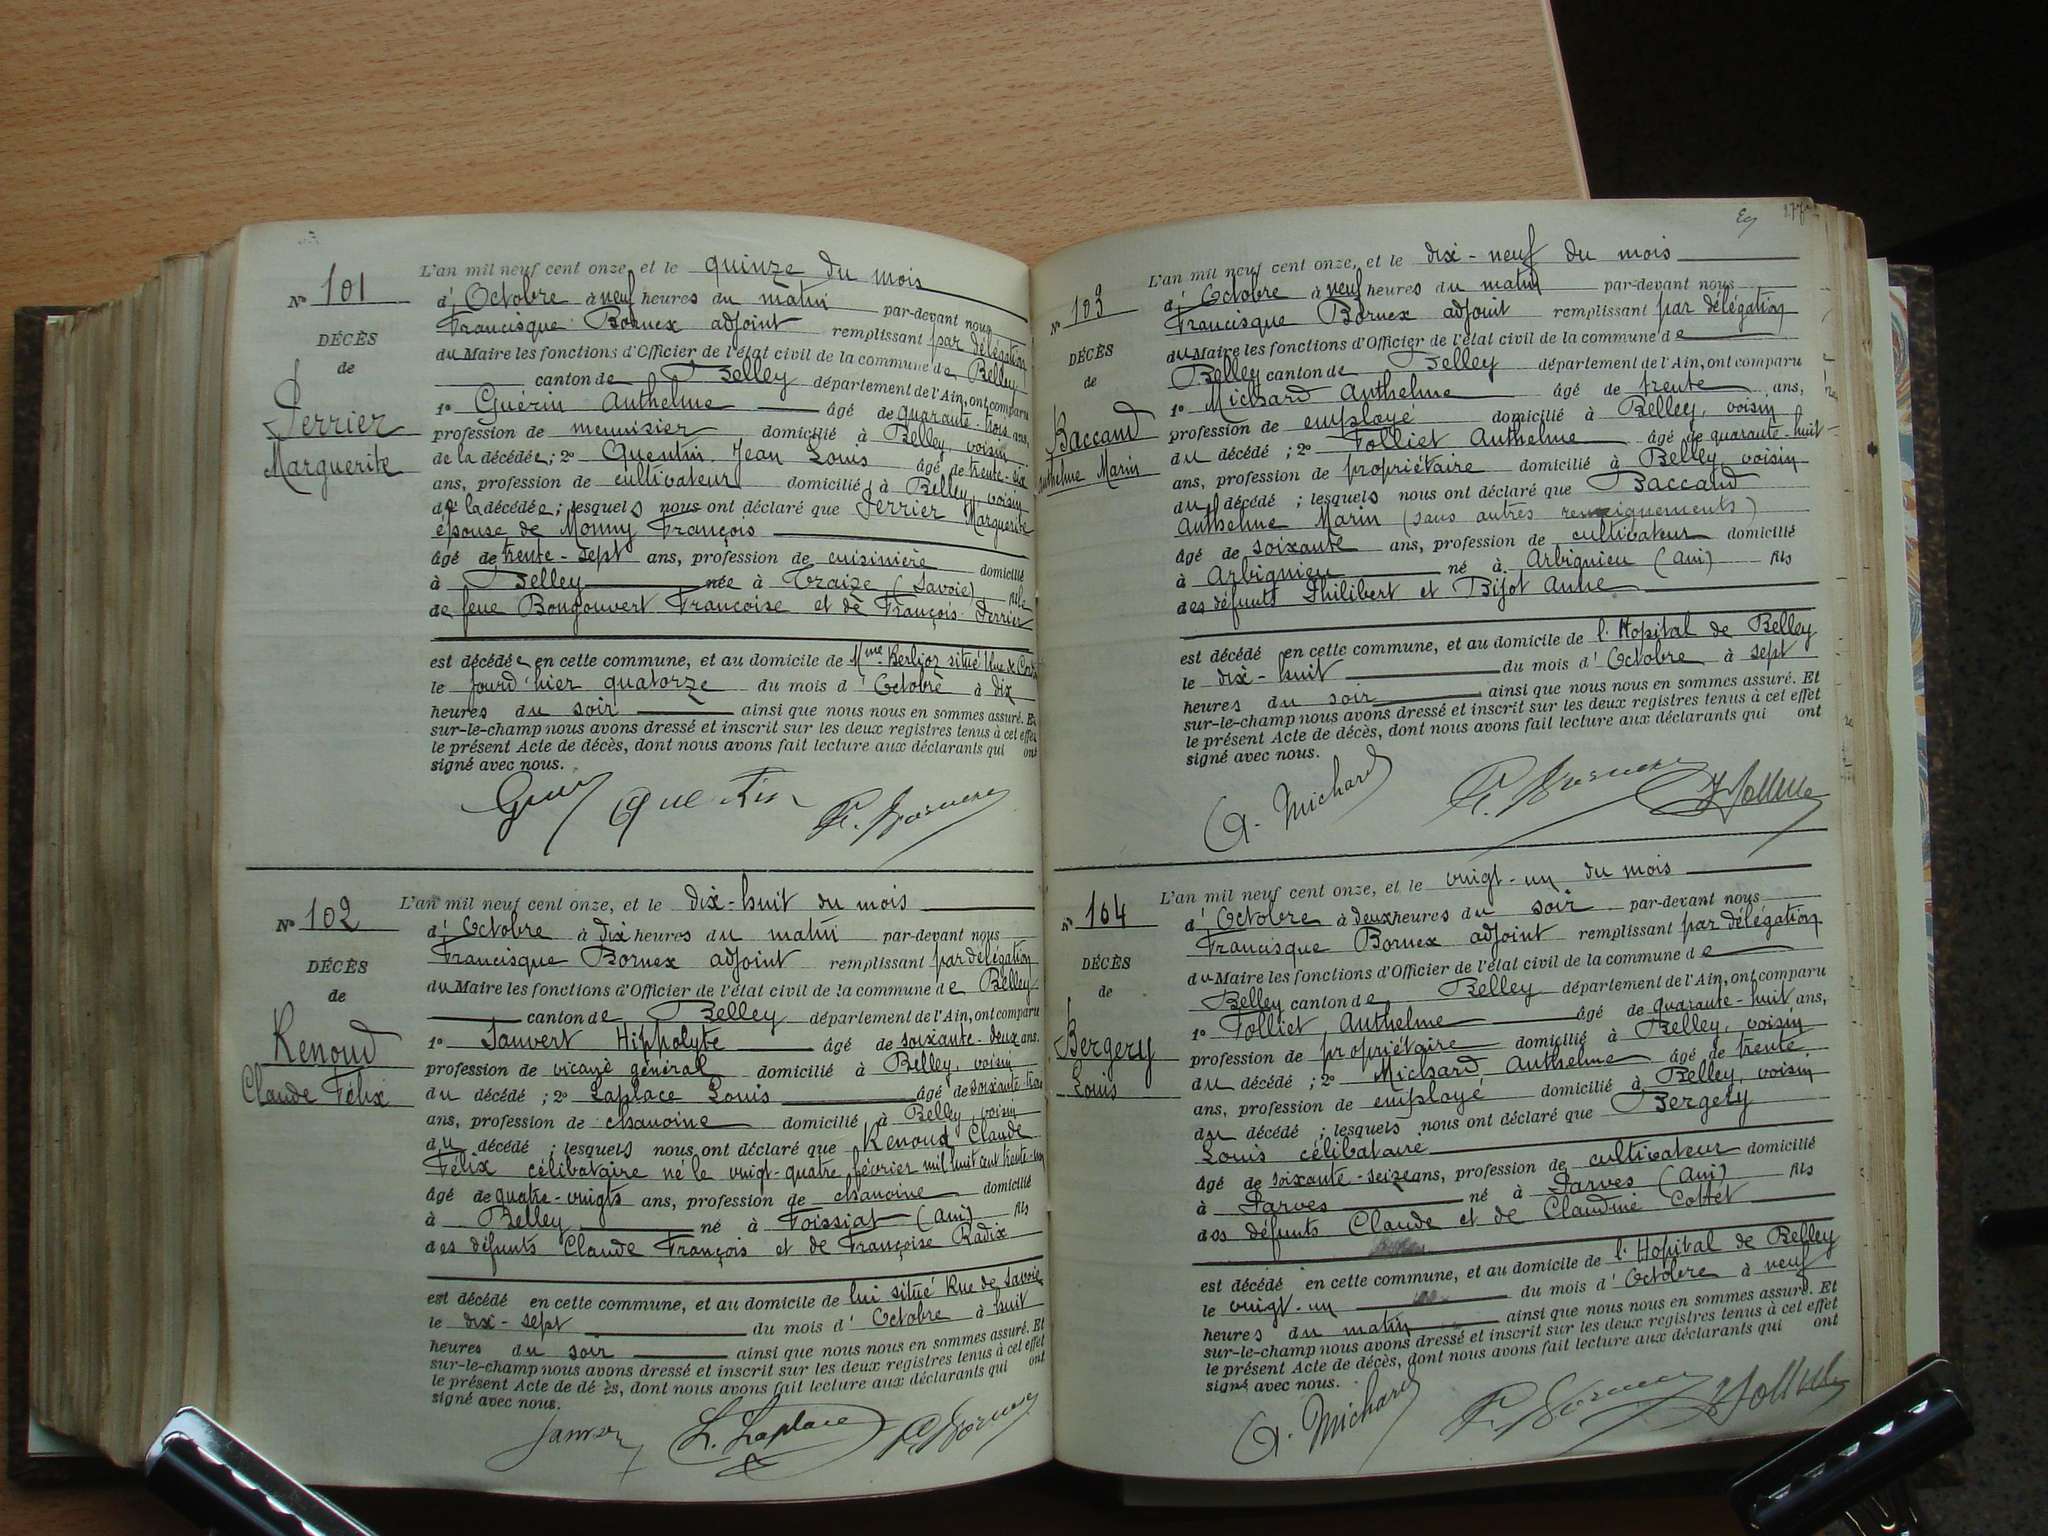 N° 101
DÉCÈS
de
Perrier
Marguerite
L'an mil neuf cent onze, et le quinze du mois
d'Octobre à neuf heures du matin par-devant nous
Francisque Bornex adjoint remplissant par délégation
du Maire les fonctions d'Officier de l'état civil de la commune de Belley
canton de Belley département de l'Ain, ont comparu
1° Guérin Anthelme âgé de quarante-trois ans,
profession de menuisier domicilié à Belley, voisin
de la décédée; 2° Quentin Jean Louis âgé de trente-six
ans, profession de cultivateur domicilié à Belley, voisin
de la décédée; lesquels nous ont déclaré que Perrier Marguerite
épouse de Monny François
âgé de trente-sept ans, profession de cuisinière domicilié
à Belley née à Traize (Savoie) fille
de feue Bongouvert Françoise et de François Perrier
est décédée en cette commune, et au domicile de Mme Berlioz situé
le jourd'hier quatorze du mois d'Octobre à dix
heures du soir ainsi que nous nous en sommes assuré. Et
sur-le-champ nous avons dressé et inscrit sur les deux registres tenus à cet effet
le présent Acte de décès, dont nous avons fait lecture aux déclarants qui ont
signé avec nous.
Quentin F. Bornex
N° 102
DÉCÈS
de
Renoud
Claude Félix
L'an mil neuf cent onze, et le dix-huit du mois
d'Octobre à dix heures du matin par-devant nous
Francisque Bornex adjoint remplissant par délégation
du Maire les fonctions d'Officier de l'état civil de la commune de Belley
canton de Belley département de l'Ain, ont comparu
1° Janvert Hippolyte âgé de soixante-deux ans.
profession de vicaire général domicilié à Belley, voisin
du décédé; 2° Laplace Louis âgé de soixante-trois
ans, profession de chanoine domicilié à Belley, voisin
du décédé; lesquels nous ont déclaré que Renoud Claude
Félix célibataire né le vingt-quatre février mil huit cent trente-un
âgé de quatre-vingts ans, profession de chanoine domicilié
à Belley né à Foissiat (Ain) fils
des défunts Claude François et de Françoise Radix
est décédé en cette commune, et au domicile de lui situé Rue de Savoie
le dix-sept du mois d'Octobre à huit
heures du soir ainsi que nous nous en sommes assuré. Et
sur-le-champ nous avons dressé et inscrit sur les deux registres tenus à cet effet
le présent Acte de décès, dont nous avons fait lecture aux déclarants qui ont
signé avec nous.
L. Laplace F. Bornex
N° 103
DÉCÈS
de
Baccard
Anthelme Marin
L'an mil neuf cent onze, et le dix-neuf du mois
d'Octobre à neuf heures du matin par-devant nous
Francisque Bornex adjoint remplissant par délégation
du Maire les fonctions d'Officier de l'état civil de la commune de
Belley canton de Belley département de l'Ain, ont comparu
1° Michard Anthelme âgé de trente ans,
profession de employé domicilié à Belley, voisin
du décédé; 2° Folliet Anthelme âgé de quarante-huit
ans, profession de propriétaire domicilié à Belley, voisin
du décédé; lesquels nous ont déclaré que Baccard
Anthelme Marin (sans autres renseignements)
âgé de soixante ans, profession de cultivateur domicilié
à Arbignieu né à Arbignieu (Ain) fils
des défunts Philibert et Bijot Anne
est décédé en cette commune, et au domicile de l'Hopital de Belley
le dix-huit du mois d'Octobre à sept
heures du soir ainsi que nous nous en sommes assuré. Et
sur-le-champ nous avons dressé et inscrit sur les deux registres tenus à cet effet
le présent Acte de décès, dont nous avons fait lecture aux déclarants qui ont
signé avec nous.
A. Michard F. Bornex
N° 104
DÉCÈS
de
Bergery
Louis
L'an mil neuf cent onze, et le vingt-un du mois
d'Octobre à deux heures du soir par-devant nous
Francisque Bornex adjoint remplissant par délégation
du Maire les fonctions d'Officier de l'état civil de la commune de
Belley canton de Belley département de l'Ain, ont comparu
1° Folliet Anthelme âgé de quarante-huit ans,
profession de propriétaire domicilié à Belley, voisin
du décédé; 2° Michard Anthelme âgé de trente
ans, profession de employé domicilié à Belley, voisin
du décédé; lesquels nous ont déclaré que Bergery
Louis célibataire
âgé de soixante-seize ans, profession de cultivateur domicilié
à Parves né à Parves (Ain) fils
des défunts Claude et de Claudine Cottet
est décédé en cette commune, et au domicile de l'Hopital de Belley
le vingt-un du mois d'Octobre à neuf
heures du matin ainsi que nous nous en sommes assuré. Et
sur-le-champ nous avons dressé et inscrit sur les deux registres tenus à cet effet
le présent Acte de décès, dont nous avons fait lecture aux déclarants qui ont
signé avec nous.
A. Michard F. Bornex